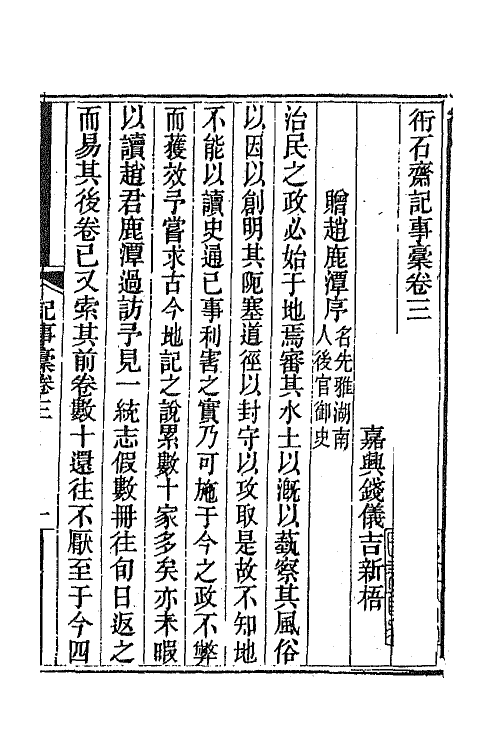 衎石齋記事稾卷三
嘉興錢儀吉新梧
贈趙鹿潭序名先雅湖南
人後官御史
治民之政必始于地焉審其水土以漑以蓺察其風俗
以因以創明其阨塞道徑以封守以攻取是故不知地
不能以讀史通已事利害之實乃可施于今之政不弊
而獲效予嘗求古今地記之說累數十家多矣亦未暇
以讀趙君鹿潭過訪予見一統志假數冊往旬日返之
而易其後卷已又索其前卷數十還往不厭至于今四
記事稾卷三
一